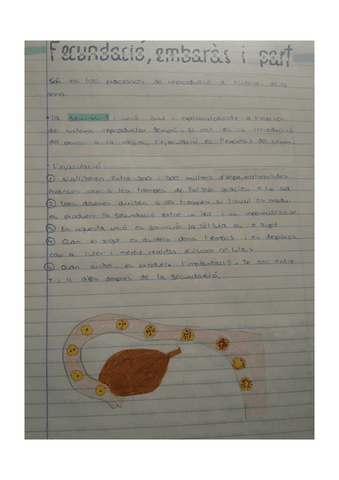 Fecundació, embaràs i part
Són els tres processos de reproducció a l'interior de la
dona.
• La fecundació: unió òvul i espermatozoide a l'interior
del sistema reproductor femení. El coit es la introducció
del penis a la vagina, l'ejaculació es l'expulsió del semen.
• L'ejaculació:
1 S'alliberen entre 200 i 300 milions d'espermatozoides
cap a les trompes de Fal·lopi gràcies a la cua
2 Unes desenes arriben a les trompes, si l'òvul es madur
es produeix la fecundació entre un òvul i un espermatozoide
3 En aquesta unió es formarà la cèl·lula ou o zigot
4 Quan el zigot es divideix dona l'embrió i es desplaça
cap a l'úter i mentre realitza divisions cel·lulars.
5 Quan arriba es produeix l'implantació. Té lloc entre
7 i dies després de la fecundació.